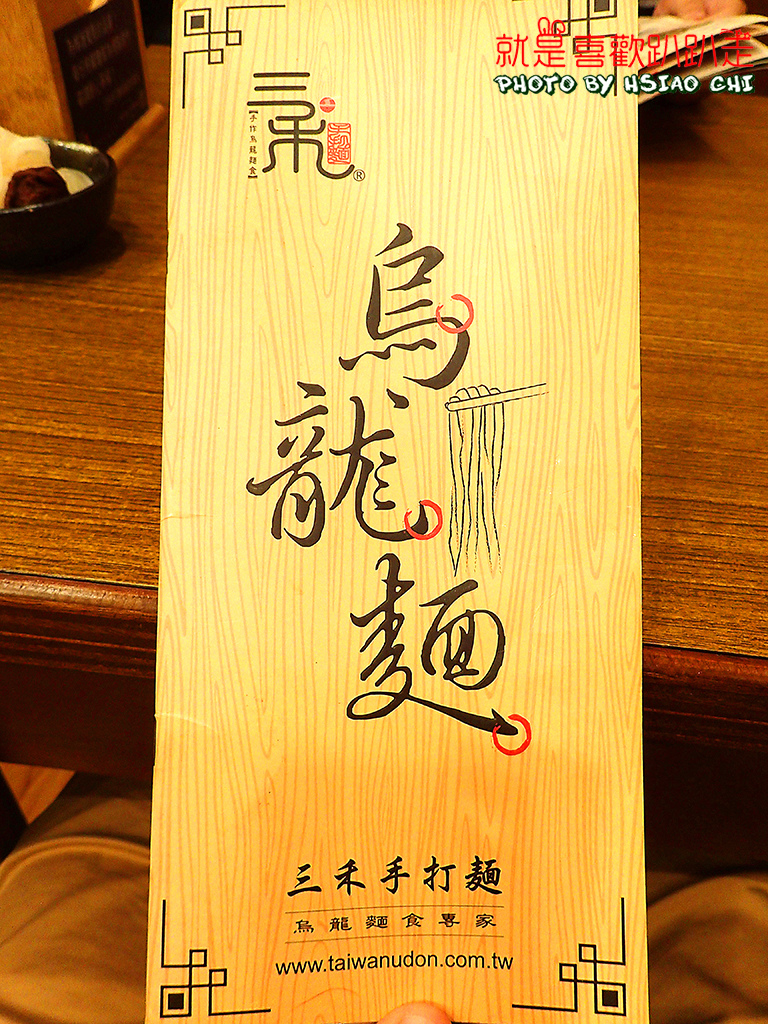 就是喜歡趴趴走
PHOTO BY HSIAO CHI
三禾
【手作烏龍麵食】
手打麵
®
烏龍麵
三禾手打麵
烏龍麵食專家
www.taiwanudon.com.tw